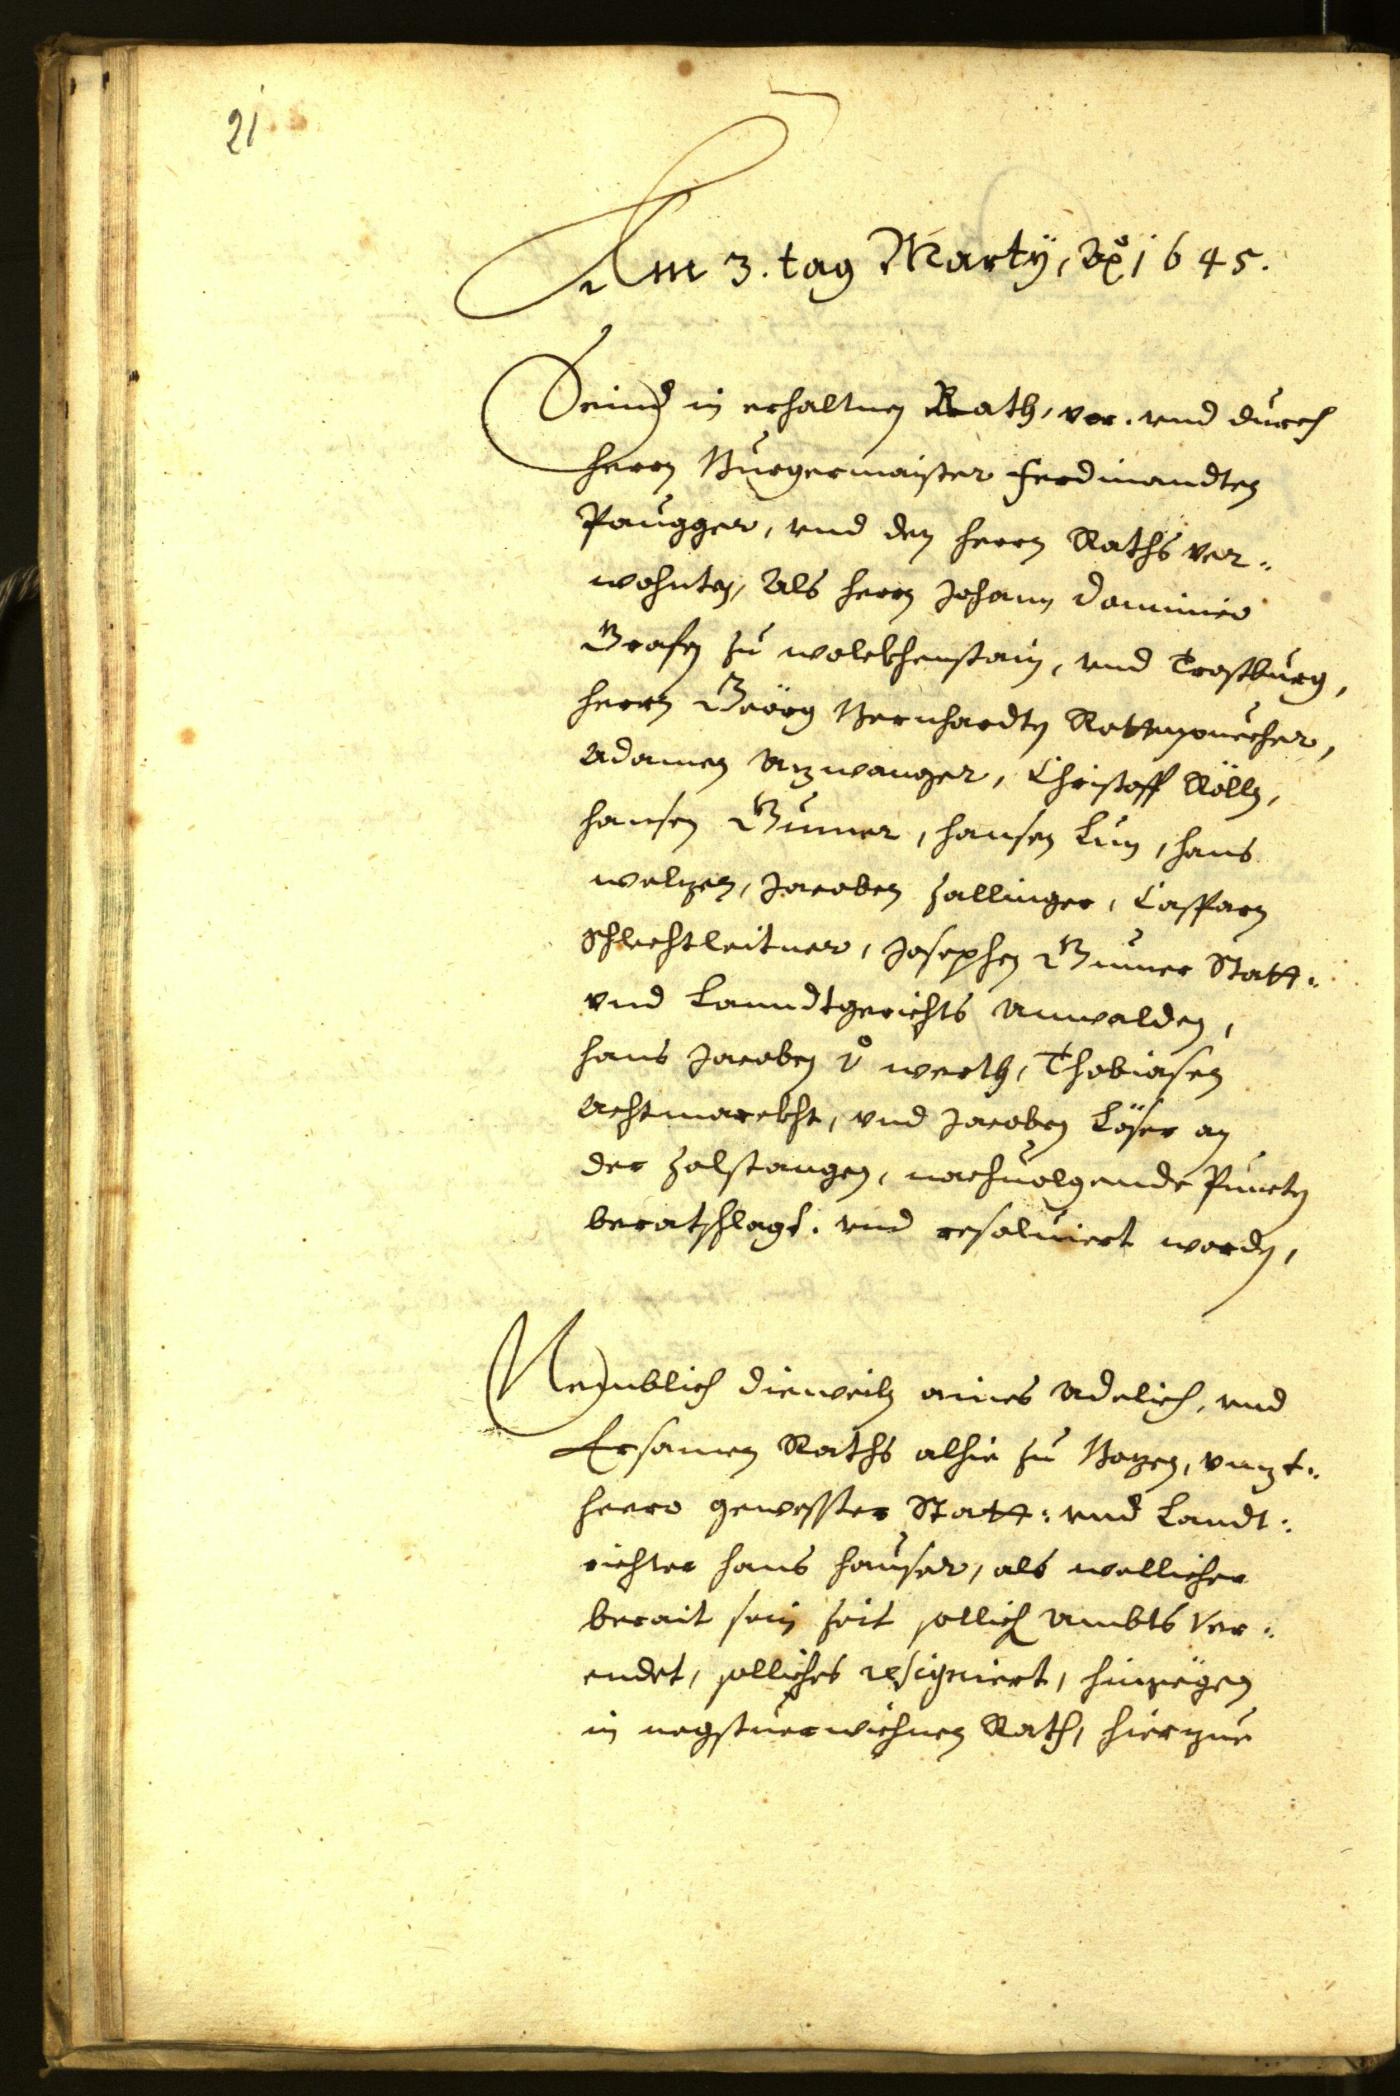 21
Am 3. tag Martÿ, Aõ 1645.
Seind in erhaltnen Rath, vor. vnd durch
herrn Burgermaister Ferdinandten
Paugger, vnd den herrn Raths ver„
wohnten, Als herrn Johann Dominico
Grafen zu wolckhenstain, vnd Trostburg,
herrn Geörg Bernhardten Rottenpuecher,
Adamen Anzwanger, Christoff Röllen,
hansen Gumer, hansen Lun, hans
welzen, Jacoben Zallinger, Casparn
Schlechtleitner, Josephen Gumer Statt„
vnd Lanndtgerichts Anwalden,
hans Jacoben v werth, Thobiasen
Achtmarckht, vnd Jacoben Löser an
der Zolstangen, nachuolgende Puncten
beratschlagt. vnd resoluiert worden,
Nemblich dieweiln aines Adelich, vnd
Ersamen Raths alhie zu Bozen, vnzt„
heero gewester Statt: vnd Landt:
richter hans hauser, als wellicher
berait sein zeit sollich Ambts Ver„
endet, solliches resigniert, hinzegen
in negstuerwichnen Rath, hierzue